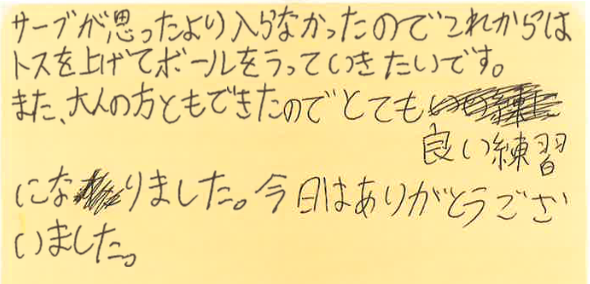 サーブが思ったより入らなかったのでこれからは
トスを上げてボールをうっていきたいです。
また、大人の方ともできたのでとても
良い練習
になりました。今日はありがとうござ
いました。